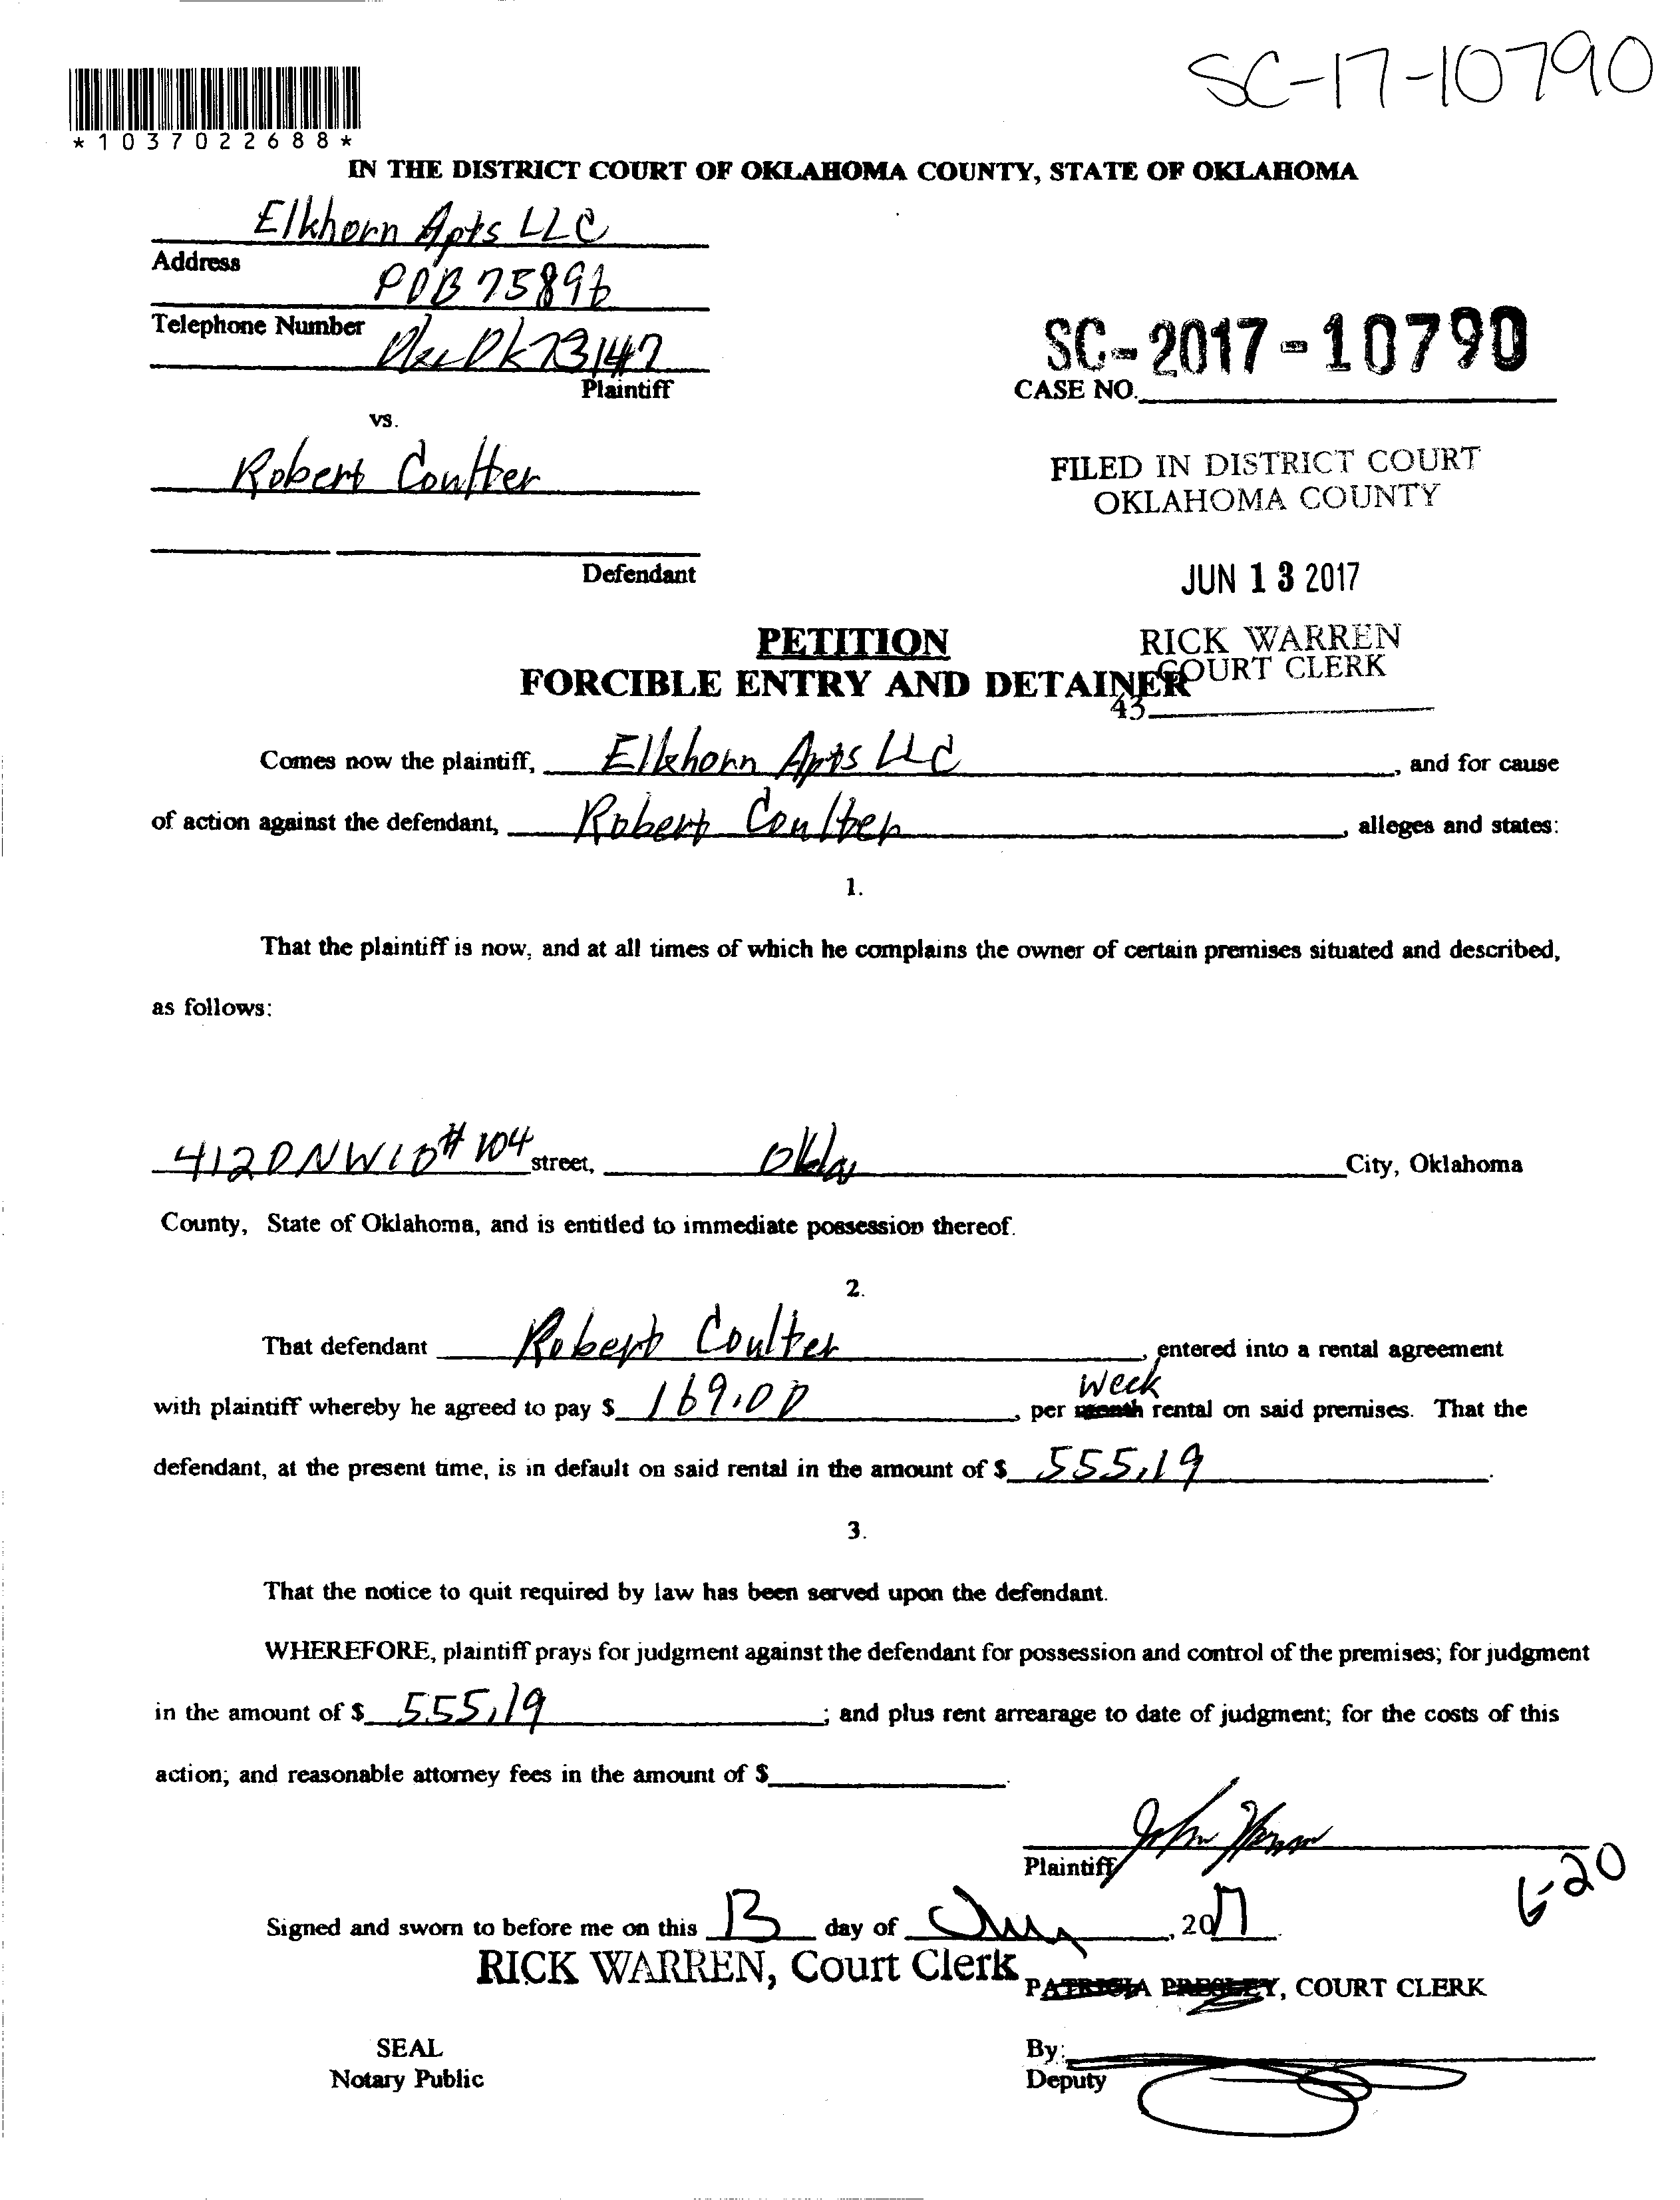 SC-17-10790
*1037022688*
IN THE DISTRICT COURT OF OKLAHOMA COUNTY, STATE OF OKLAHOMA
Elkhorn Apts LLC
Address
POB 75896
Telephone Number
Okc Ok 73147
Plaintiff
SC-2017-10790
CASE NO.
vs.
Robert Coulter
FILED IN DISTRICT COURT
OKLAHOMA COUNTY
Defendant
JUN 13 2017
PETITION
RICK WARREN
FORCIBLE ENTRY AND DETAINER
COURT CLERK
43
Comes now the plaintiff, Elkhorn Apts LLC, and for cause
of action against the defendant, Robert Coulter, alleges and states:
1.
That the plaintiff is now, and at all times of which he complains the owner of certain premises situated and described,
as follows:
4120 NW 10 #104 street, Okla City, Oklahoma
County, State of Oklahoma, and is entitled to immediate possession thereof.
2.
That defendant Robert Coulter, entered into a rental agreement
with plaintiff whereby he agreed to pay $ 169.00, per month week rental on said premises. That the
defendant, at the present time, is in default on said rental in the amount of $ 555.19.
3.
That the notice to quit required by law has been served upon the defendant.
WHEREFORE, plaintiff prays for judgment against the defendant for possession and control of the premises; for judgment
in the amount of $ 555.19; and plus rent arrearage to date of judgment; for the costs of this
action; and reasonable attorney fees in the amount of $
John
Plaintiff
6-20
Signed and sworn to before me on this 13 day of, 2017
RICK WARREN, Court Clerk
PATRICIA PRESLEY, COURT CLERK
SEAL
Notary Public
By:
Deputy